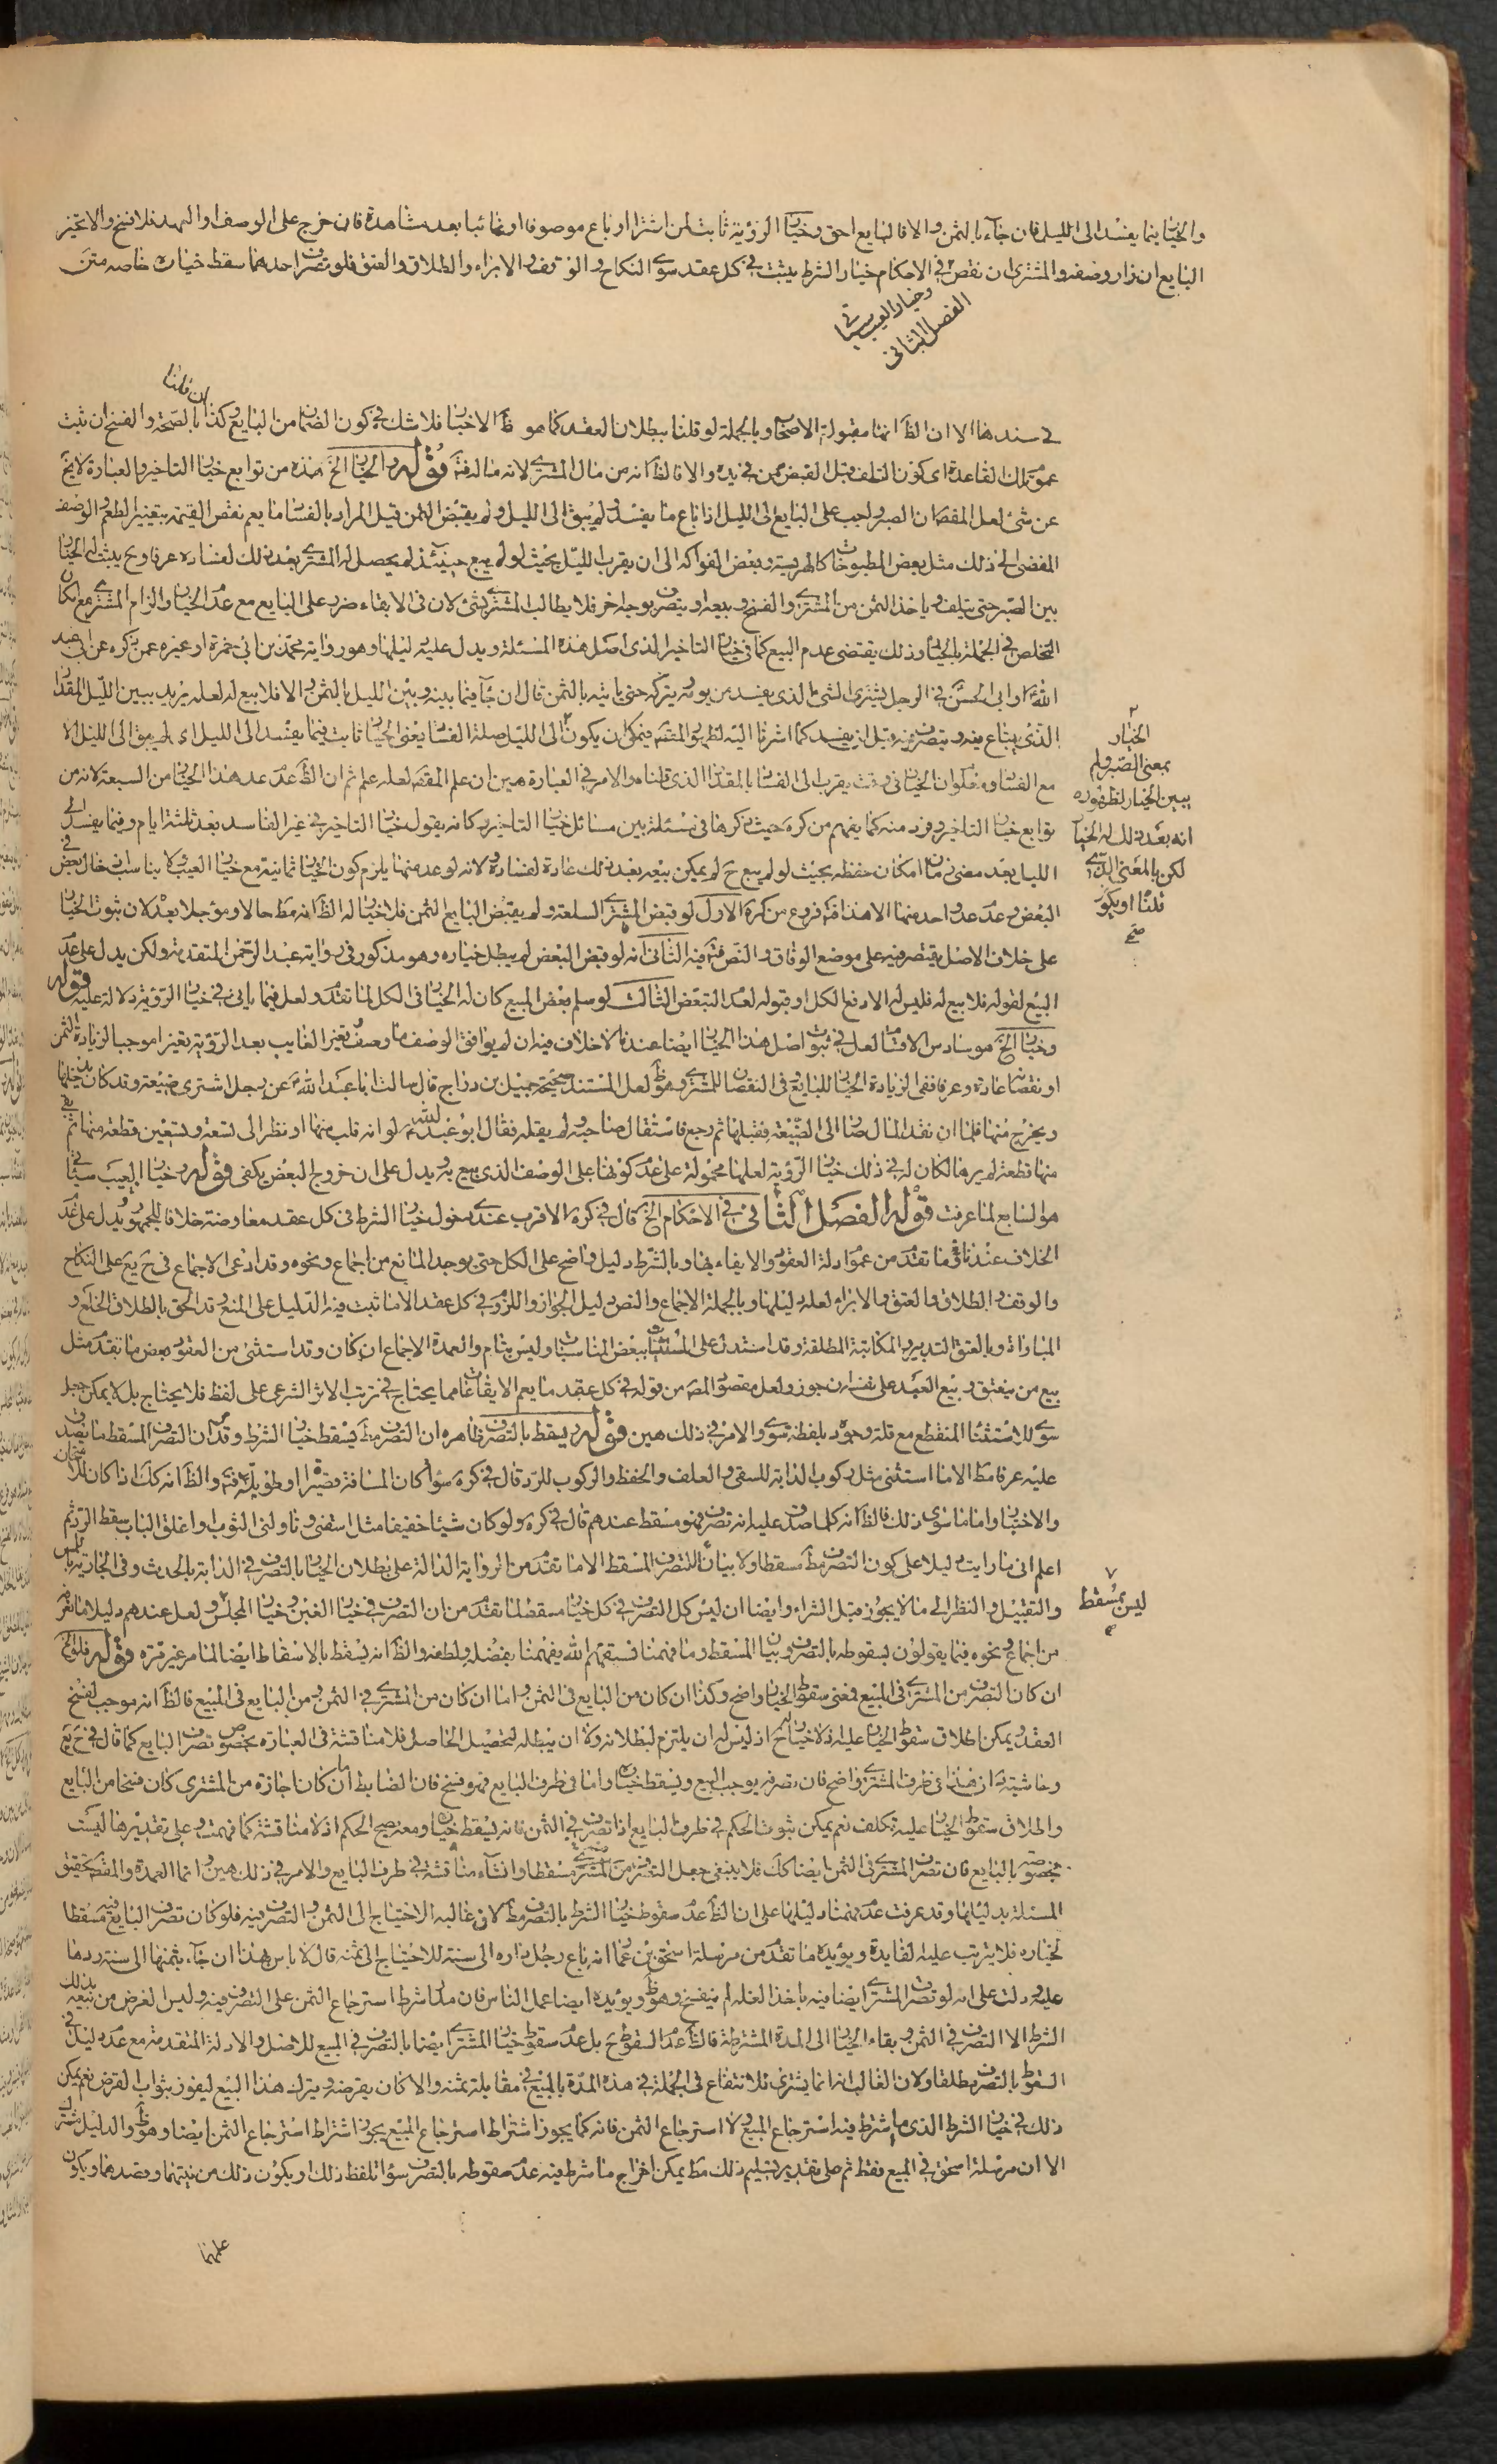 والخيار فيما يفسد الى الليل فان جآء بالثمن والا فالبايع احق وخيار الرؤية ثابت لمن اشترا او باع موصوفا او غائبا بعد مشاهدة فان خرج على الوصف او العهد فلا فسخ والا تخير
البايع ان زاد وصفه والمشترى ان نقص في الاحكام خيار الشرط يثبت في كل عقد سوى النكاح والوقف والابراء والطلاق والعتق فلو تصرف احدهما سقط خياره خاصه متن
وخيار العيب سياتى
الفصل الثانى
سندها الا ان الظ انها مقبولة الاصحاب وبالجملة لو قلنا ببطلان العقد كما هو ظ الاخبار فلا شك في كون الضمان من البايع وكذا ان قلنا بالصحة والفسخ ان ثبت
عموم تلك القاعدة اى كون التلف قبل القبض ممن في يده والا فالظ انه من مال المشترى لانه ماله فت قوله والخيار الخ هذه من توابع خيار التاخير والعبارة لا يخ
عن شئ لعل المقص ان الصبر واجب على البايع الى الليل اذا باع ما يفسد لو لم يبق الى الليل ولم يقبض الثمن قيل المراد بالفساد ما يعم نقص القيمة بتغير الطعم والوصف
المفضى الى ذلك مثل بعض المطبوخات كالهريسة وبعض الفواكه الى ان يقرب الليل بحيث لو لم يبع حينئذ لم يحصل له المشترى بعد ذلك لفساده عرفا وح يثبت له الخيار
بين الصبر حتى يتلف وياخذ الثمن من المشترى والفسخ وبيعه او يتصرف بوجه اخر فلا يطالب المشترى بشئ لان فى الابقاء ضرر على البايع مع عدم الخيار والزام المشترى مع امكان
التخلص في الجملة بالخيار وذلك يقتضى عدم البيع كما في خيار التاخير الذى اصل هذه المسئلة ويدل عليه دليلها وهو رواية محمد بن ابى حمزة او غيره عمن ذكره عن ابى عبد
الله او ابى الحسن في الرجل يشترى الشئ الذى يفسد من يومه ويتركه حتى ياتيه بالثمن قال ان جآء فيما بينه وبين الليل بالثمن والا فلا بيع له لعله يريد ببين الليل المقدار
الذى يبتاع فيه ويتصرف فيه قبل ان يفسد كما اشرنا اليه
مع الفساد
توابع خيار التاخير وفرد منه كما يفهم من كره حيث ذكرها في مسئلة بين مسائل خيار التاخير كانه يقول خيار التاخير في غير الفاسد بعد ثلثة ايام وفيما يفسد الى
الليل بعد مضى زمان امكان حفظه بحيث لو لم يبع ح لم يمكن بيعه بعد ذلك عادة لفساده ولانه لو عد منها يلزم كون الخيار ثمانية مع خيار العيب ولا يناسب ادخال بعض في
البعض وعدم عد واحد منها الا هذا فت فروع من كره الاول لو قبض المشترى السلعة ولم يقبض البايع الثمن فلا خيار له الظ انه مط حالا ومؤجلا بعد لان ثبوت الخيار
على خلاف الاصل يقتصر فيه على موضع الوفاق والنص فت فيه الثانى انه لو قبض البعض لم يبطل خياره وهو مذكور فى رواية عبد الرحمن المتقدمة ولكن يدل على عدم
البيع لقوله فلا بيع له فليس له الا دفع الكل او قبوله لعدم التبعض الثالث لو سلم بعض المبيع كان له الخيار فى الكل لما تقدم ولعل فيما ياتى في خيار الرؤية دلالة عليه قوله
وخيار الخ هو سادس الاقسام لعل في ثبوت اصل هذا الخيار ايضا عندنا لا خلاف فيه ان لم يوافق الوصف ما وصف وتغير الغايب بعد الرؤية بتغير اموجبا لزيادة الثمن
او نقصانه عادة وعرفا ففى الزيادة الخيار للبايع وفى النقصان للمشترى وهو ظ لعل المستند صحيحة جميل بن دراج قال سالت ابا عبد الله عن رجل اشترى ضيعة وقد كان يدخلها
ويخرج منها فلما ان نقد المال صار الى الضيعة فقبلها ثم رجع فاستقال صاحبه ولم يقله فقال ابو عبد الله لو انه قلب منها او نظر الى تسعة وتسعين قطعة منها ثم بقى
منها قطعة لم يرها لكان له في ذلك خيار الرؤية لعلها محمولة على عدم كونها على الوصف الذى بيع به ويدل على ان خروج البعض يكفى قوله وخيار العيب سياتى
هو السابع لما عرفت قوله الفصل الثانى في الاحكام الخ قال في كره الاقرب عندى دخول خيار الشرط فى كل عقد معاوضة خلافا للجمهور ويدل على عدم
الخلاف عندنا فت ما تقدم من عموم ادلة العقود والايفاء بها وبالشرط دليل واضح على الكل حتى يوجد المانع من اجماع ونحوه وقد ادعى الاجماع فى ح يع على النكاح
والوقف والطلاق والعتق والابراء لعله دليلها وبالجملة الاجماع والنص دليل الجواز واللزوم في كل عقد الا ما ثبت فيه الدليل على المنع وقد الحق بالطلاق الخلع و
المباراة وبالعتق التدبير والمكاتبة المطلقة وقد استدل على المستثنيات ببعض المناسبات وليس بتام والعمدة الاجماع ان كان وقد استثنى من العقود بعض ما تقدم مثل
بيع من ينعتق وبيع العبد على نفسه ان جوز ولعل مقصود المص من قوله في كل عقد ما يعم الايقاعات مما يحتاج في ترتب الاثر الشرعى على لفظ فلا يحتاج بل لا يمكن جعل
سوى للاستثناء المنقطع مع قلة وجوده بلفظة سوى والامر في ذلك هين قوله ويسقط بالتصرف ظاهره ان التصرف مط يسقط خيار الشرط وقد ان التصرف المسقط ما يصدق
عليه عرفا مط الا ما استثنى مثل ركوب الدابة للسقى والعلف والحفظ والركوب للرد قال في كره سواء كان المسافة قصيرة او طويلة فت والظ انه كك اذا كان للامتحان
والاختبار واما ما سوى ذلك فالظ انه كلما صدق عليه انه تصرف فهو مسقط عندهم قال في كره ولو كان شيئا خفيفا مثل استقنى وناولنى الثوب او اغلق الباب سقط الرد ثم
اعلم انى ما رايت دليلا على كون التصرف مط مسقطا ولا بيانا للتصرف المسقط الا ما تقدم من الرواية الدالة على بطلان الخيار بالتصرف في الدابة بالحدث وفى الجارية باللمس
والتقبيل والنظر الى ما لا يجوز قبل الشراء وايضا ان ليس كل التصرف في كل خيار مسقط لما تقدم من ان التصرف في خيار الغبن وخيار المجلس ولعل عندهم دليلا ما نعرفه
من اجماع ونحوه فيما يقولون بسقوطه بالتصرف وبيان المسقط وما فهمنا فسبقهم الله يفهمنا بفضله ولطفه والظ انه يسقط بالاسقاط ايضا لما مر غير مرة قوله فلو الخ
ان كان التصرف من المشترى فى المبيع فمعنى سقوط الخيار واضح وكذا ان كان من البايع فى الثمن واما ان كان من المشترى في الثمن ومن البايع فى المبيع فالظ انه موجب لفسخ
العقد ويمكن اطلاق سقوط الخيار عليه اذ لا خيار له ح اذ ليس له ان يلتزم لبطلانه ولا ان يبطله لتحصيل الحاصل فلا مناقشة فى العبارة بخصوص تصرف البايع كما قال في ح يع
وحاشيته ان هذا فى طرف المشترى واضح فان تصرفه يوجب البيع ويسقط خياره واما فى طرف البايع فهو فسخ فان الضابط ان ما كان اجازة من المشترى كان فسخا من البايع
واطلاق سقوط الخيار عليه بتكلف نعم يمكن ثبوت الحكم في طرف البايع اذا تصرف في الثمن فانه يسقط خياره ومعه صح الحكم اذ لا مناقشة كما فهمت وعلى تقديرها ليست
مخصوصة بالبايع فان تصرف المشترى فى الثمن ايضا كك فلا ينبغى جعل التصرف من المشترى مسقطا وانشآء مناقشة في طرف البايع والامر في ذلك هين وانما العمدة والمقص تحقيق
المسئلة بدليلها وقد عرفت عدم فهمنا دليلها على ان الظ عدم سقوط خيار الشرط بالتصرف مط لان غالبه الاحتياج الى الثمن والتصرف فيه فلو كان تصرف البايع فيه مسقطا
لخياره فلا يترتب عليه الفايدة ويؤيده ما تقدم من مرسلة اسحق بن عمار انه باع رجل داره الى سنة للاحتياج الى ثمنه قال لا باس بهذا ان جآء بثمنها الى سنة ردها
عليه ودلت على انه لو تصرف المشترى ايضا فيه باخذ الغلة لم ينفسخ وهو ظ ويؤيده ايضا عمل الناس فان مدار شرط استرجاع الثمن على التصرف فيه وليس الغرض من بيعه بذلك
الشرط الا التصرف في الثمن وبقاء الخيار الى المدة المشترطة فالظ عدم السقوط ح بل عدم سقوط خيار المشترى ايضا بالتصرف في المبيع للاصل والادلة المتقدمة مع عدم دليل فى
السقوط بالتصرف مطلقا ولان الغالب انه انما يشترى للانتفاع فى الجملة في هذه المدة بالمبيع في مقابلة ثمنه والا كان يقرضه ويترك هذا البيع ليفوز بثواب القرض نعم يمكن
ذلك في خيار الشرط الذى ما شرط فيه استرجاع المبيع ولا استرجاع الثمن فانه كما يجوز اشتراط استرجاع المبيع يجوز اشتراط استرجاع الثمن ايضا وهو ظ والدليل مشترك
الا ان مرسلة اسحق في المبيع فقط ثم على تقدير تسليم ذلك مط يمكن اخراج ما شرط فيه عدم سقوطه بالتصرف سواء تلفظ ذلك او يكون ذلك من نيتهما وقصدهما ويكون
علمهما
الخيار
بمعنى الصبر ولم
يبين الخيار لظهوره
انه بعد ذلك له الخيار
لكن بالمعنى الذى
قلنا او يكون
صح
ليس بمسقط